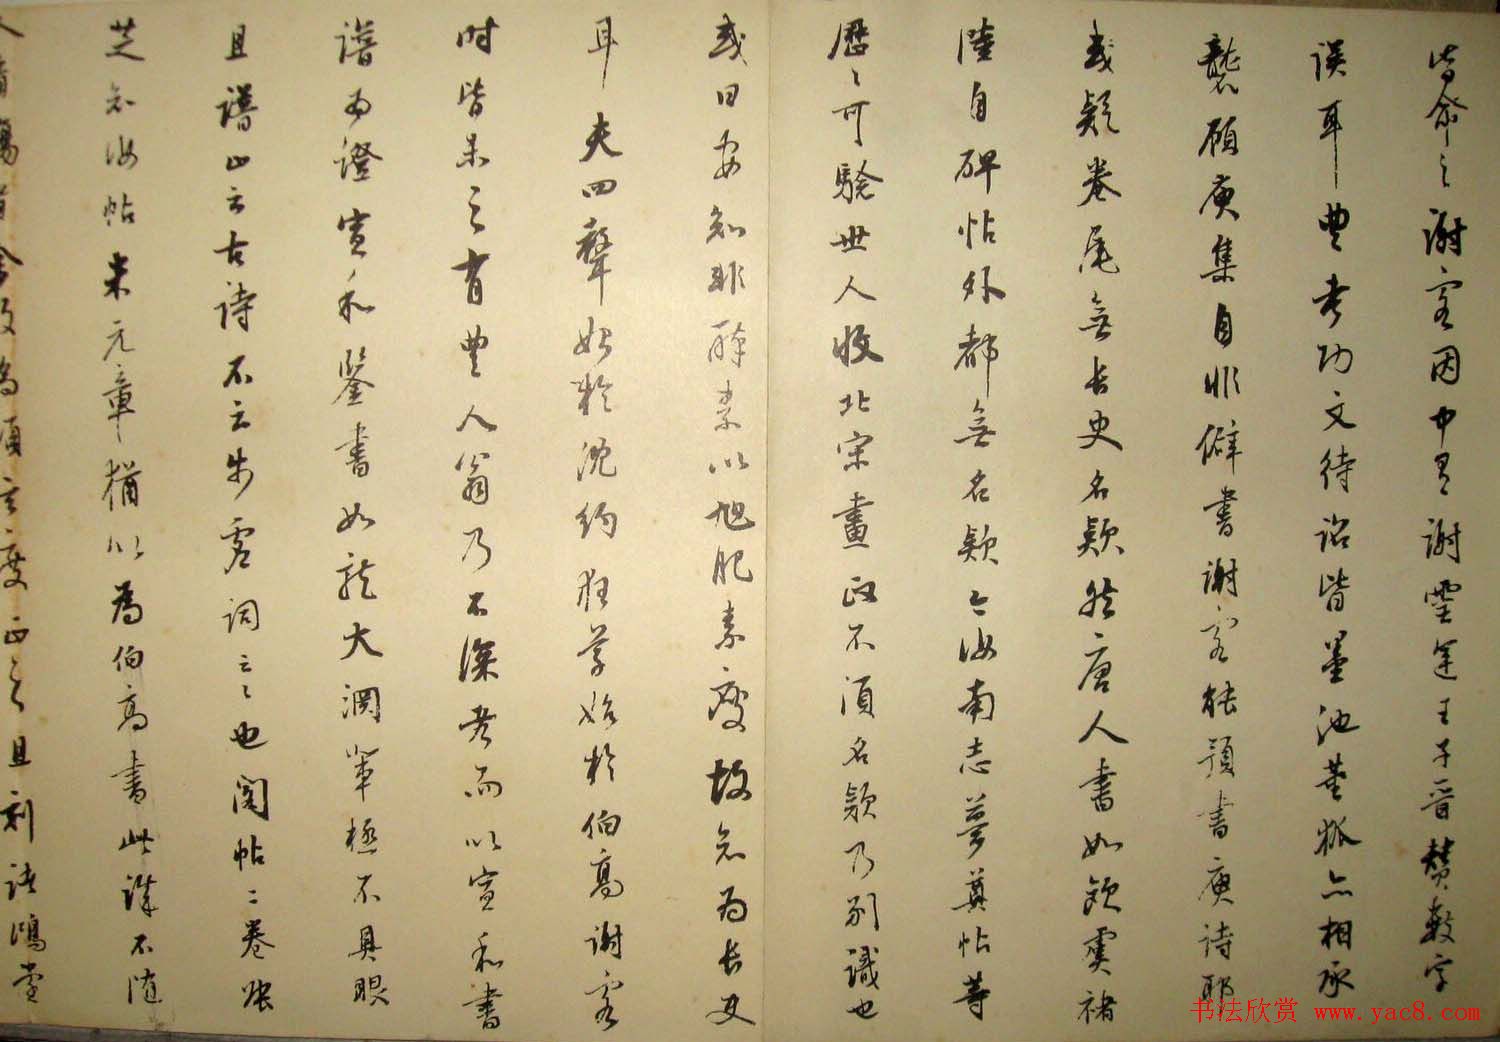 皆命之謝客因中有謝靈運王子晉贊數字
誤耳豊考功文待詔皆墨池董狐亦相承
襲顧庾集自非僻書謝客能預書庾詩耶
或疑卷尾無長史名款然唐人書如歐虞褚
陸自碑帖外都無名款今汝南志夢奠帖等
歷歷可驗世人收北宋畫政不須名款乃別識也
或曰安知非醉素以旭肥素瘦故知為長史
耳夫四聲始於沈約狂草始於伯高謝客
時皆未之有豊人翁乃不深考而以宣和書
譜為證宣和鑒書如龍大淵輩極不具眼
且譜止云古詩不云步虛詞云云也閣帖二卷張
芝知汝帖米元章猶以為伯高書此誰不隨
人看場者余故為項玄度正之且刻諸鴻堂
书法欣赏 www.yac8.com